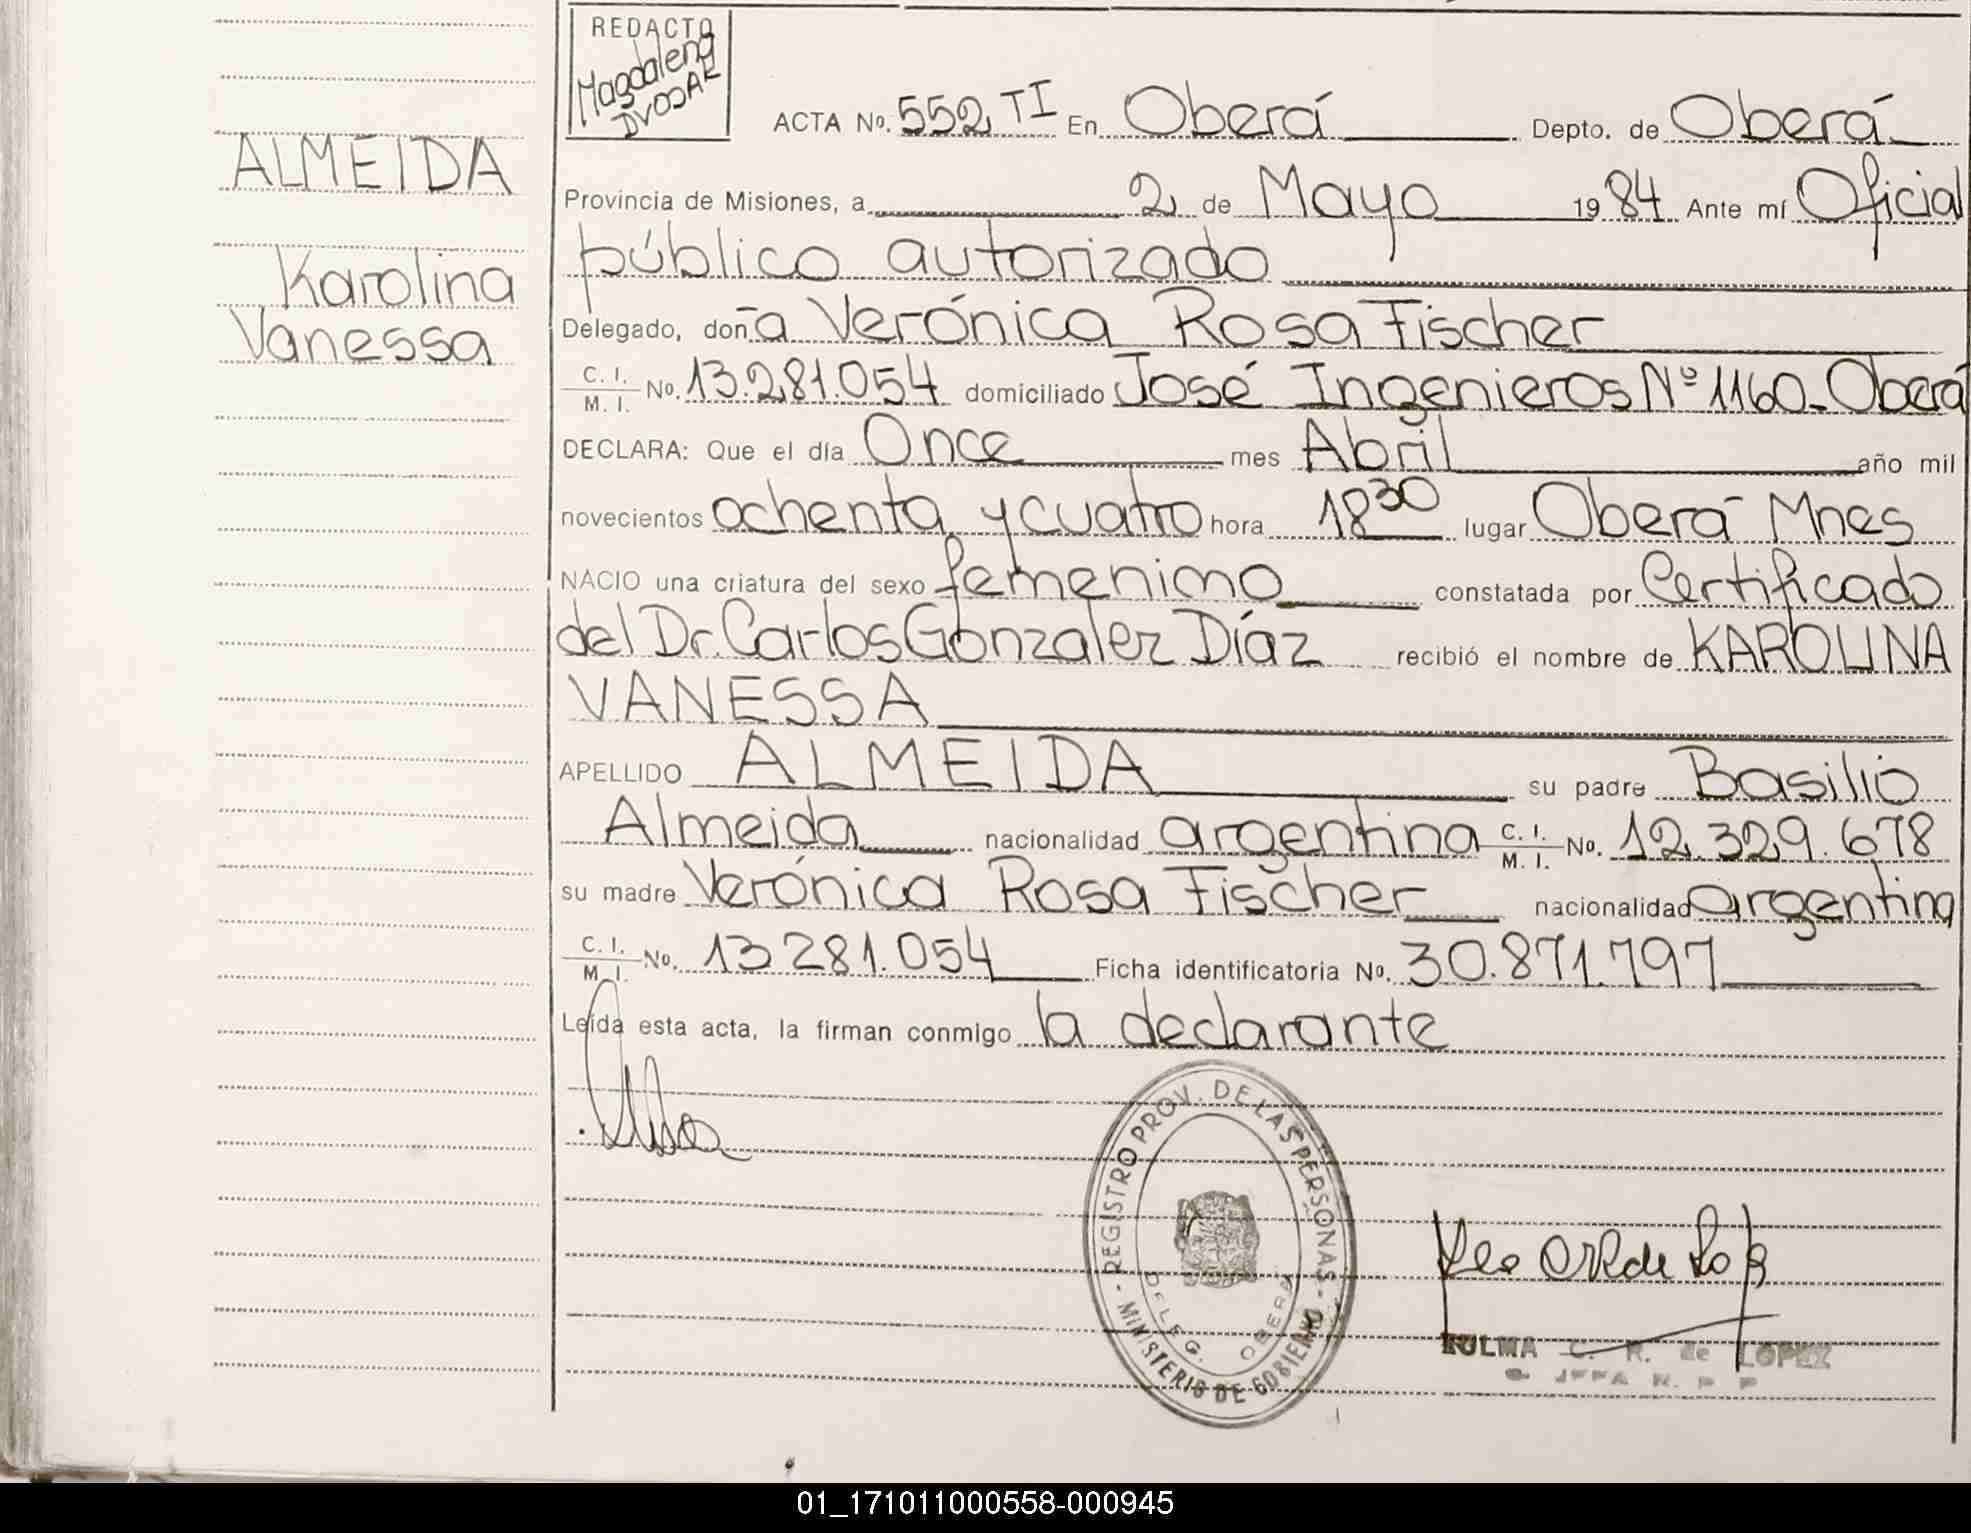 REDACTO
Magdalena
ALMEIDA
Karolina
Vanessa
ACTA No. 552 TI En Oberá Depto. de Oberá
Provincia de Misiones, a 2 de Mayo 1984 Ante mí Oficial
público autorizado
Delegado, doña Verónica Rosa Fischer
C. I. / M. I. No. 13.281.054 domiciliado José Ingenieros Nº 1160 - Oberá
DECLARA: Que el día Once mes Abril año mil
novecientos ochenta y cuatro hora 18³⁰ lugar Oberá Mnes
NACIO una criatura del sexo femenino constatada por Certificado
del Dr. Carlos Gonzalez Díaz recibió el nombre de KAROLINA
VANESSA
APELLIDO ALMEIDA su padre Basilio
Almeida nacionalidad argentina C. I. / M. I. No. 12.329.678
su madre Verónica Rosa Fischer nacionalidad argentina
C. I. / M. I. No. 13 281.054 Ficha identificatoria No. 30.871.797
Leída esta acta, la firman conmigo la declarante
REGISTRO PROV. DE LAS PERSONAS - MINISTERIO DE GOBIERNO -
DELEG. OBERA
ZULMA C. R. de LOPEZ
01_171011000558-000945